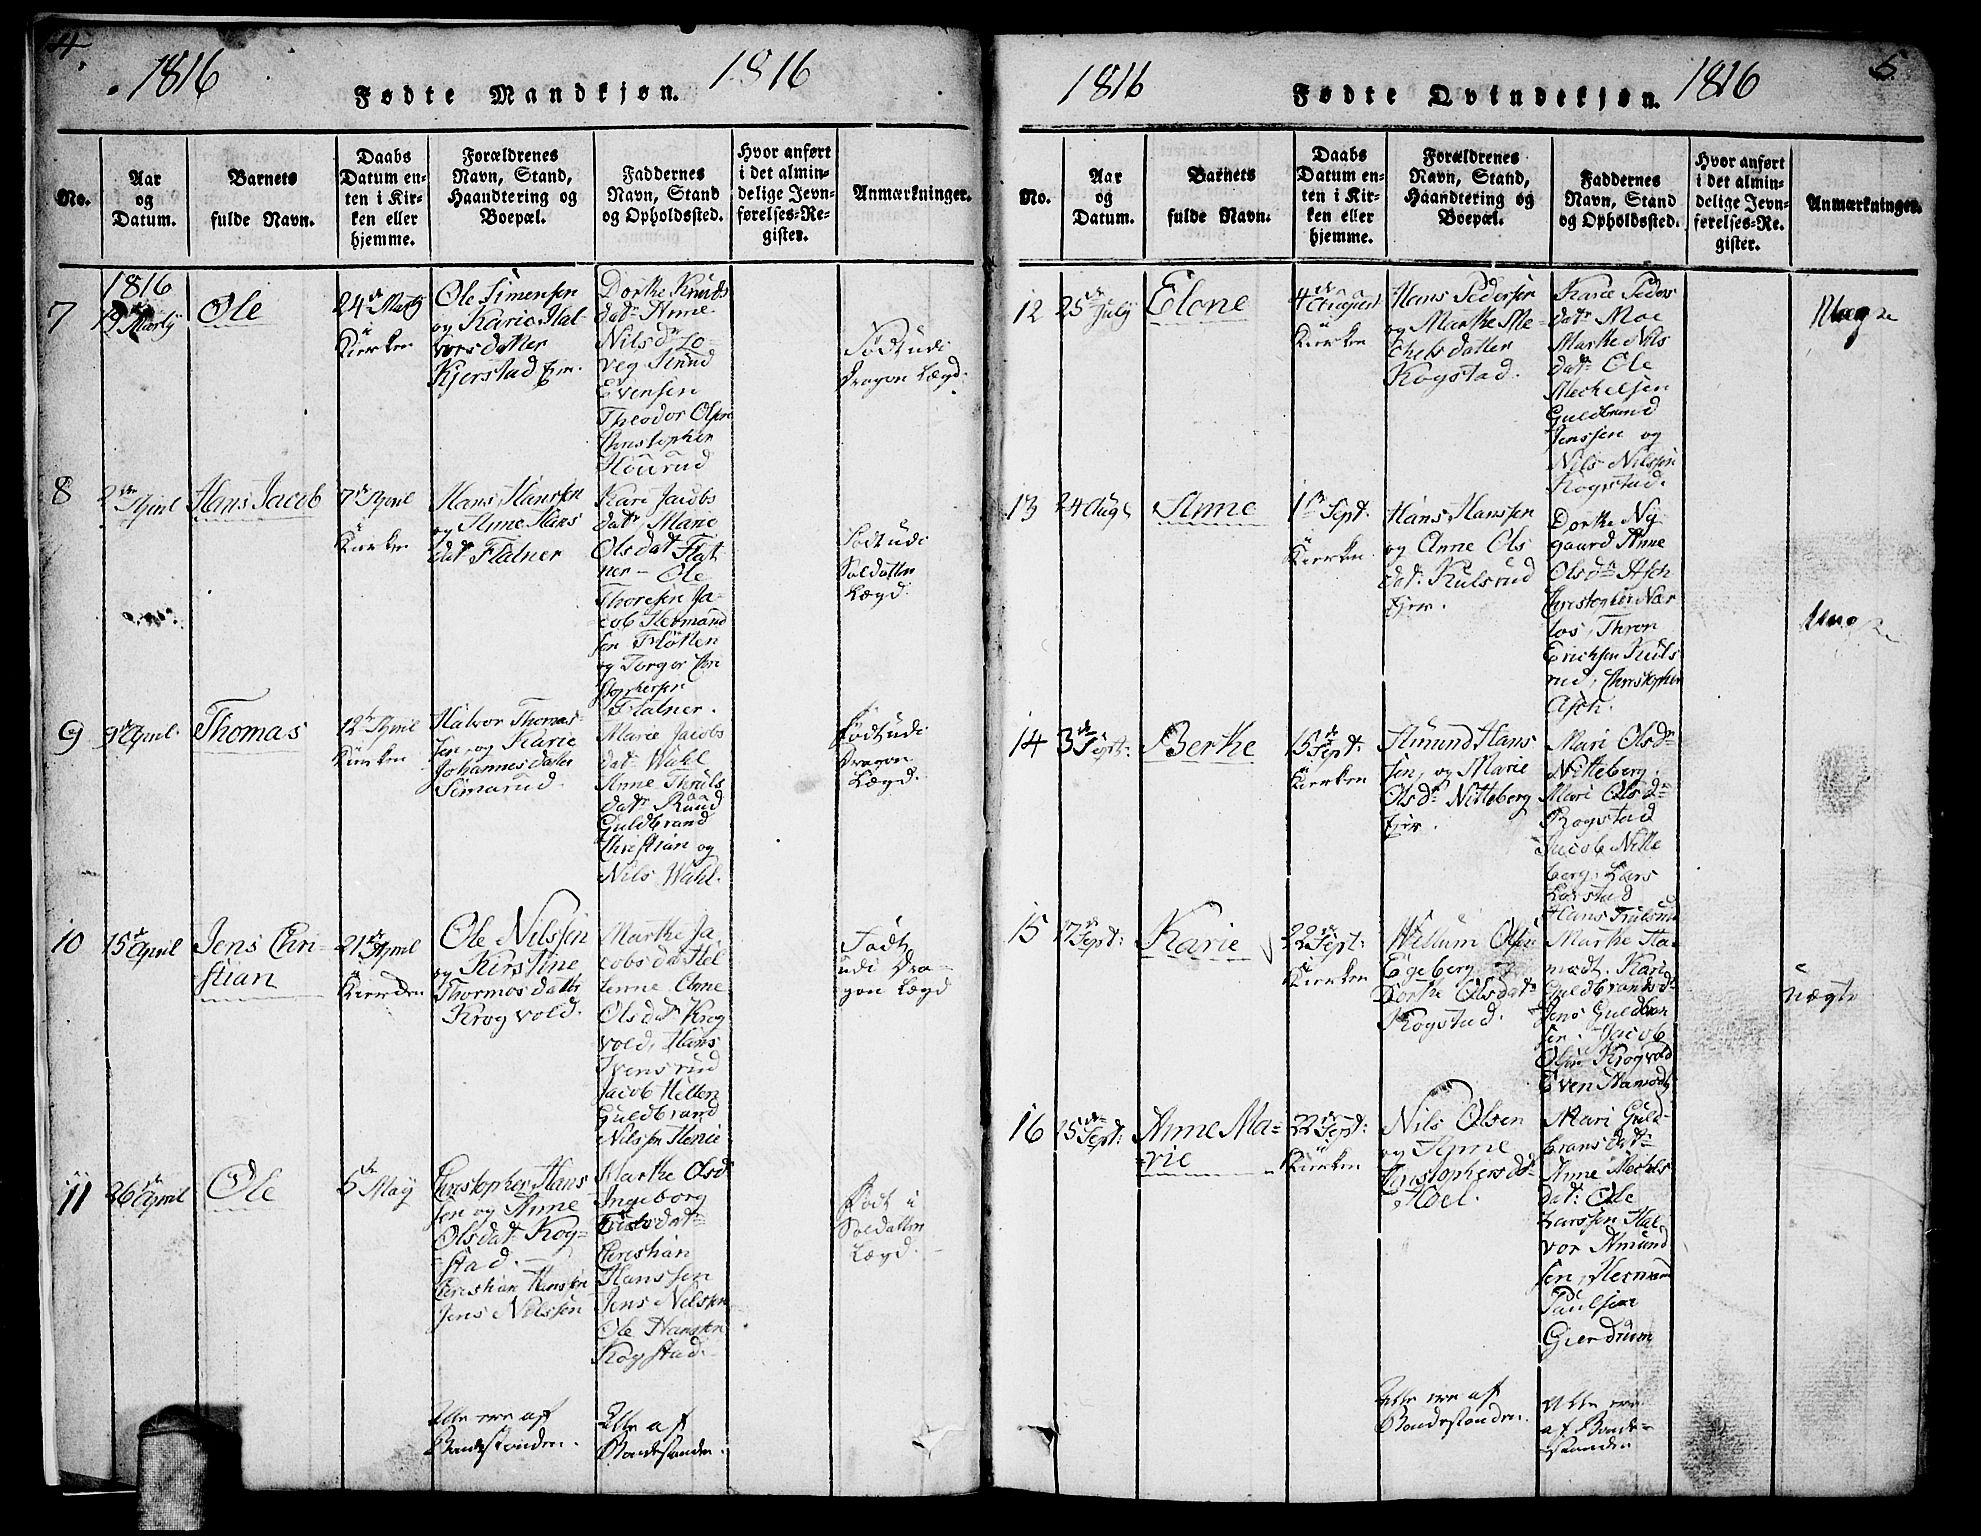 4.
1816
1816
Fødte Mandkjøn.
No.
Aar
og
Datum.
Barnets
fulde Navn.
Daabs
Datum en-
ten i Kir-
ken eller
hjemme.
Forældrenes
Navn, Stand,
Haandtering og
Boepæl.
Faddernes
Navn, Stand
og Opholdssted.
Hvor anført
i det almin-
delige Jevn-
førelses-Re-
gister.
Anmærkninger.
7
1816
19 Martij
Ole
24de Martij
Kierken
Ole Simensen
og Karie Hal
vorsdatter
Kjerstad Ejer.
Dorthe Knuds
datr Anne
Nilsdr Lo-
veg
Evensen
Theodor Olsen
Christopher
Födt udi
Dragon Lægd.
8
2den April
Hans Jacob
7de April
Kierken
Hans Hanssen
og Anne Hans
datr Flatner
Kari Jacobs
datr Marie
Olsdatr Flat
ner- Ole
Thoresen Ja-
cob Hermand
sen Flötten
og Torger Chri
stophersen
Flatner.
Födt udi
Soldatter
Lægd.
9
9de April.
Thomas
12te April
Kierken
Halvor Thomas-
sen, og Karie
Johannesdatter
Simarud.
Marie Jacobs
datr Wahl
Anne Thruls
datr Ruud
Guldbrand
Christian og
Nils Wahl.
Födt udi
Dragon
Lægd.
10
15de April
Jens Chri-
stian
21de April
Kierken
Ole Nilssen
og Kirstine
Thormosdatter
Krogvold.
Marthe Ja
cobsdatr Hel
lenne Anne
Olsdatr Krog
vold, Hans
Ivensrud
Jacob Hellen
Guldbrand
Nilssen Henie
Födt
udi Dra-
gon Lægd
11
26de April
Ole
5de May
Christopher Hans
sen og Anne
Olsdatr Kog-
stad.
Christian Hanssen
Jens Nilssen
Marthe Olsdr
Ingeborg
Trulsdatr
Christian
Hanssen
Jens Nilssen
Ole Hanssen
Kogstad.
Födt i
Soldatter
Lægd.
Alle ere af
Bondestanden.
Alle af
Bondestanden.
5.
1816
1816
Fødte Qvindekjøn.
No.
Aar
og
Datum.
Barnets
fulde Navn.
Daabs
Datum en-
ten i Kir-
ken eller
hjemme.
Forældrenes
Navn, Stand,
Haandtering og
Boepæl.
Faddernes
Navn, Stand
og Opholdssted.
Hvor anført
i det almin-
delige Jevn-
førelses-Re-
gister.
Anmærkninger.
12
25de July
Elone
4de August
Kierken
Hans Pedersen
og Marthe Me-
chelsdatter
Kogstad.
Karie Peders
datr Moe
Marthe Nils
datr Ole
Mechelsen
Guldbrand
Jenssen og
Nils Nilssen
Kogstad.
13
24 Aug
Anne
1ste Sept.
Kierken
Hans Hanssen
og Anne Ols
datr Kulsrud
Ejer.
Dorthe Ny
gaard Anne
Olsdr Asch
Christopher Nær
los, Thron
Erichsen Kuls
rud, Christopher
Asch.
14
3de Sept:
Berthe
15de Sept:
Kierken
Amund Hans
sen, og Marie
Olsdr Nitteberg
Ejer.
Mari Olsdr
Nitteberg.
Mari Olsdr
Bogstad
Jacob Nitte
berg, Lars
Larstad
Hans Trulsrud
15
17de Sept:
Karie
22de Sept:
Kierken
Willum Olsen
Egeberg og
Dorthe Olsdatr
Kogstad.
Marthe Ha-
modt. Kari
Guldbrandsdr
Jens Guldbran
sen. Jacob
Olsen Krogvold
Even Hamodt
Uægte
16
15de Sept:
Anne Ma-
rie
22de Sept:
Kierken
Nils Olsen
og Anne
Christophersdr
Hoel.
Mari Guld-
bransdatr
Anne Mechels
datr Ole
Larssen Hal
vor Amund
sen, Herman
Paulsen
Gierdrum
Alle ere af
Bondestanden.
Alle ere
af Bonde-
standen